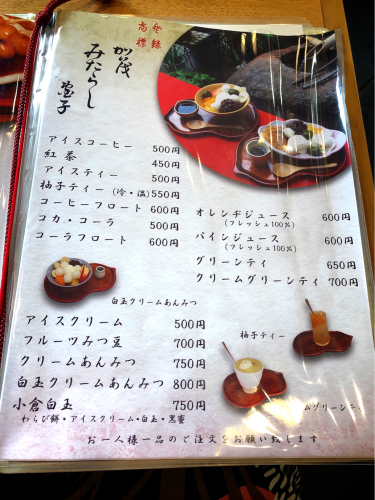 登録
商標
加茂
みたらし
団子
アイスコーヒー 500円
紅茶 450円
アイスティー 500円
柚子ティー(冷・温) 550円
コーヒーフロート 600円
コカ・コーラ 500円
コーラフロート 600円
オレンヂジュース 600円
(フレッシュ100%)
パインジュース 600円
(フレッシュ100%)
グリーンティ 650円
クリームグリーンティ 700円
白玉クリームあんみつ
アイスクリーム 500円
フルーツみつ豆 700円
クリームあんみつ 750円
白玉クリームあんみつ 800円
小倉白玉 750円
わらび餅・アイスクリーム・白玉・黒蜜
柚子ティー
ムグリーンティ
お一人様一品のご注文をお願い致します